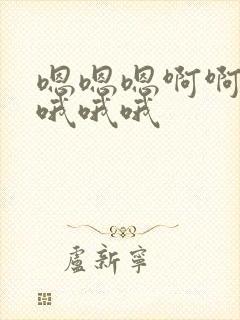 嗯嗯嗯啊啊
哦哦哦
盧新寧